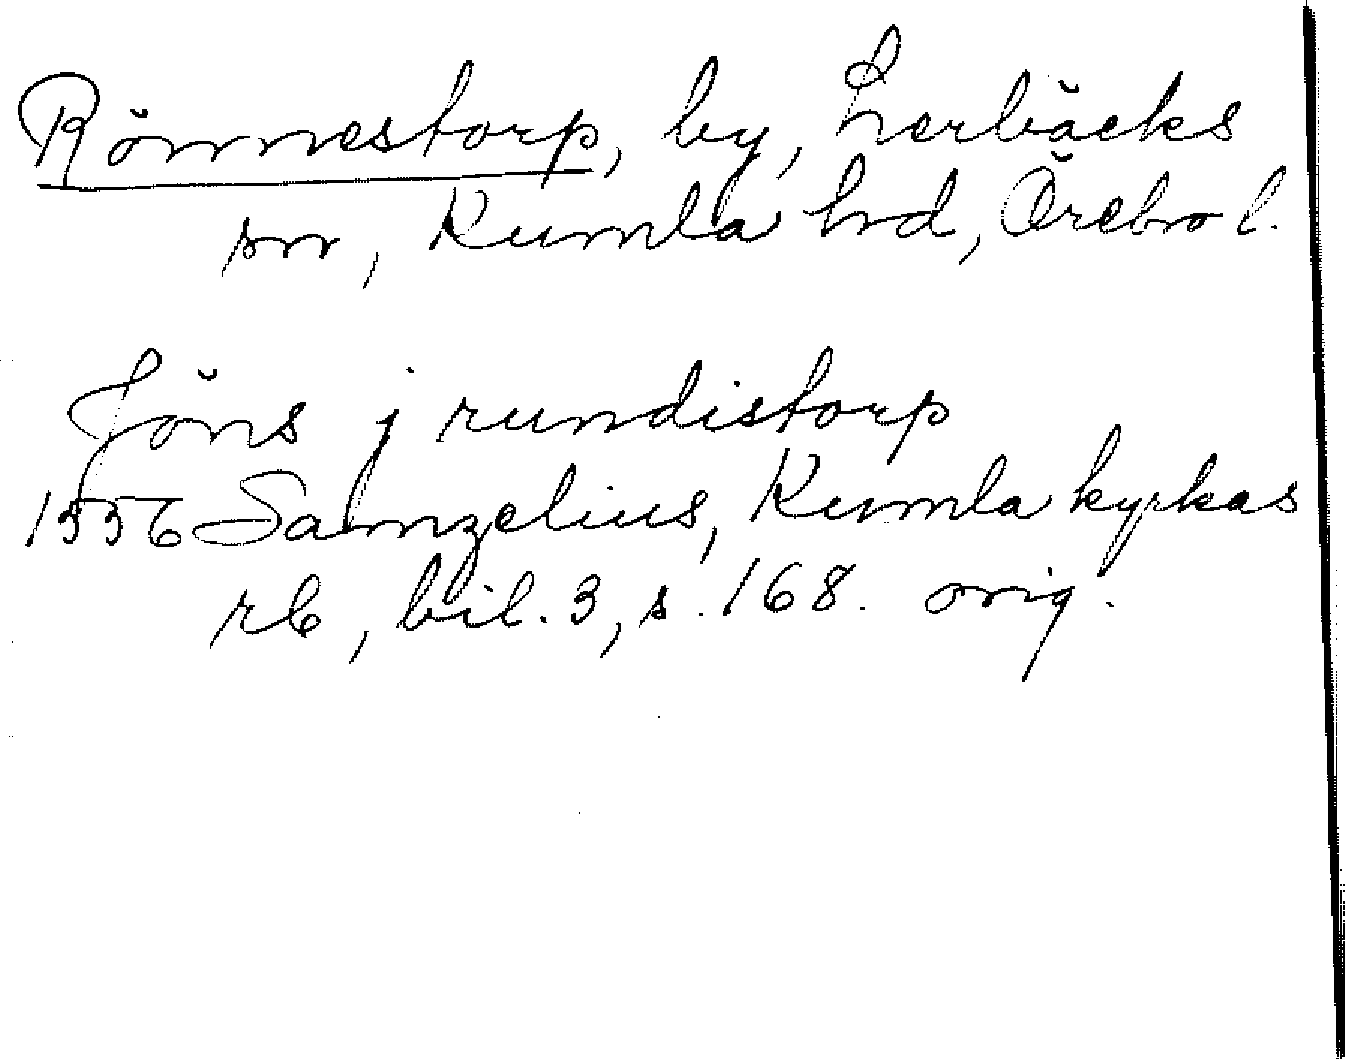 Rönnestorp, by, Lerbäcks
sn, Kumla hd, Örebro l.
Jöns j rundistorp
1556 Samzelius, Kumla kyrkas
rb, bil. 3, s. 168. orig.